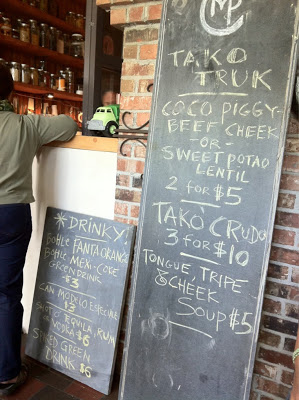 CMP
TAKO
TRUK
COCO PIGGY-
BEEF CHEEK
-OR-
SWEET POTAO
LENTIL
2 FOR $5
TAKO CRUDO
3 FOR $10
TONGUE, TRIPE
& CHEEK
SOUP $5
* DRINKY.
BOHLE FANTA ORANG
BOHLE MEXI-COKE
GREEN DRINK
-$3
CAN MODELO ESPECIALE
$3
TEQUILA, RUM
VODKA $6
GREEN
DRINK $6